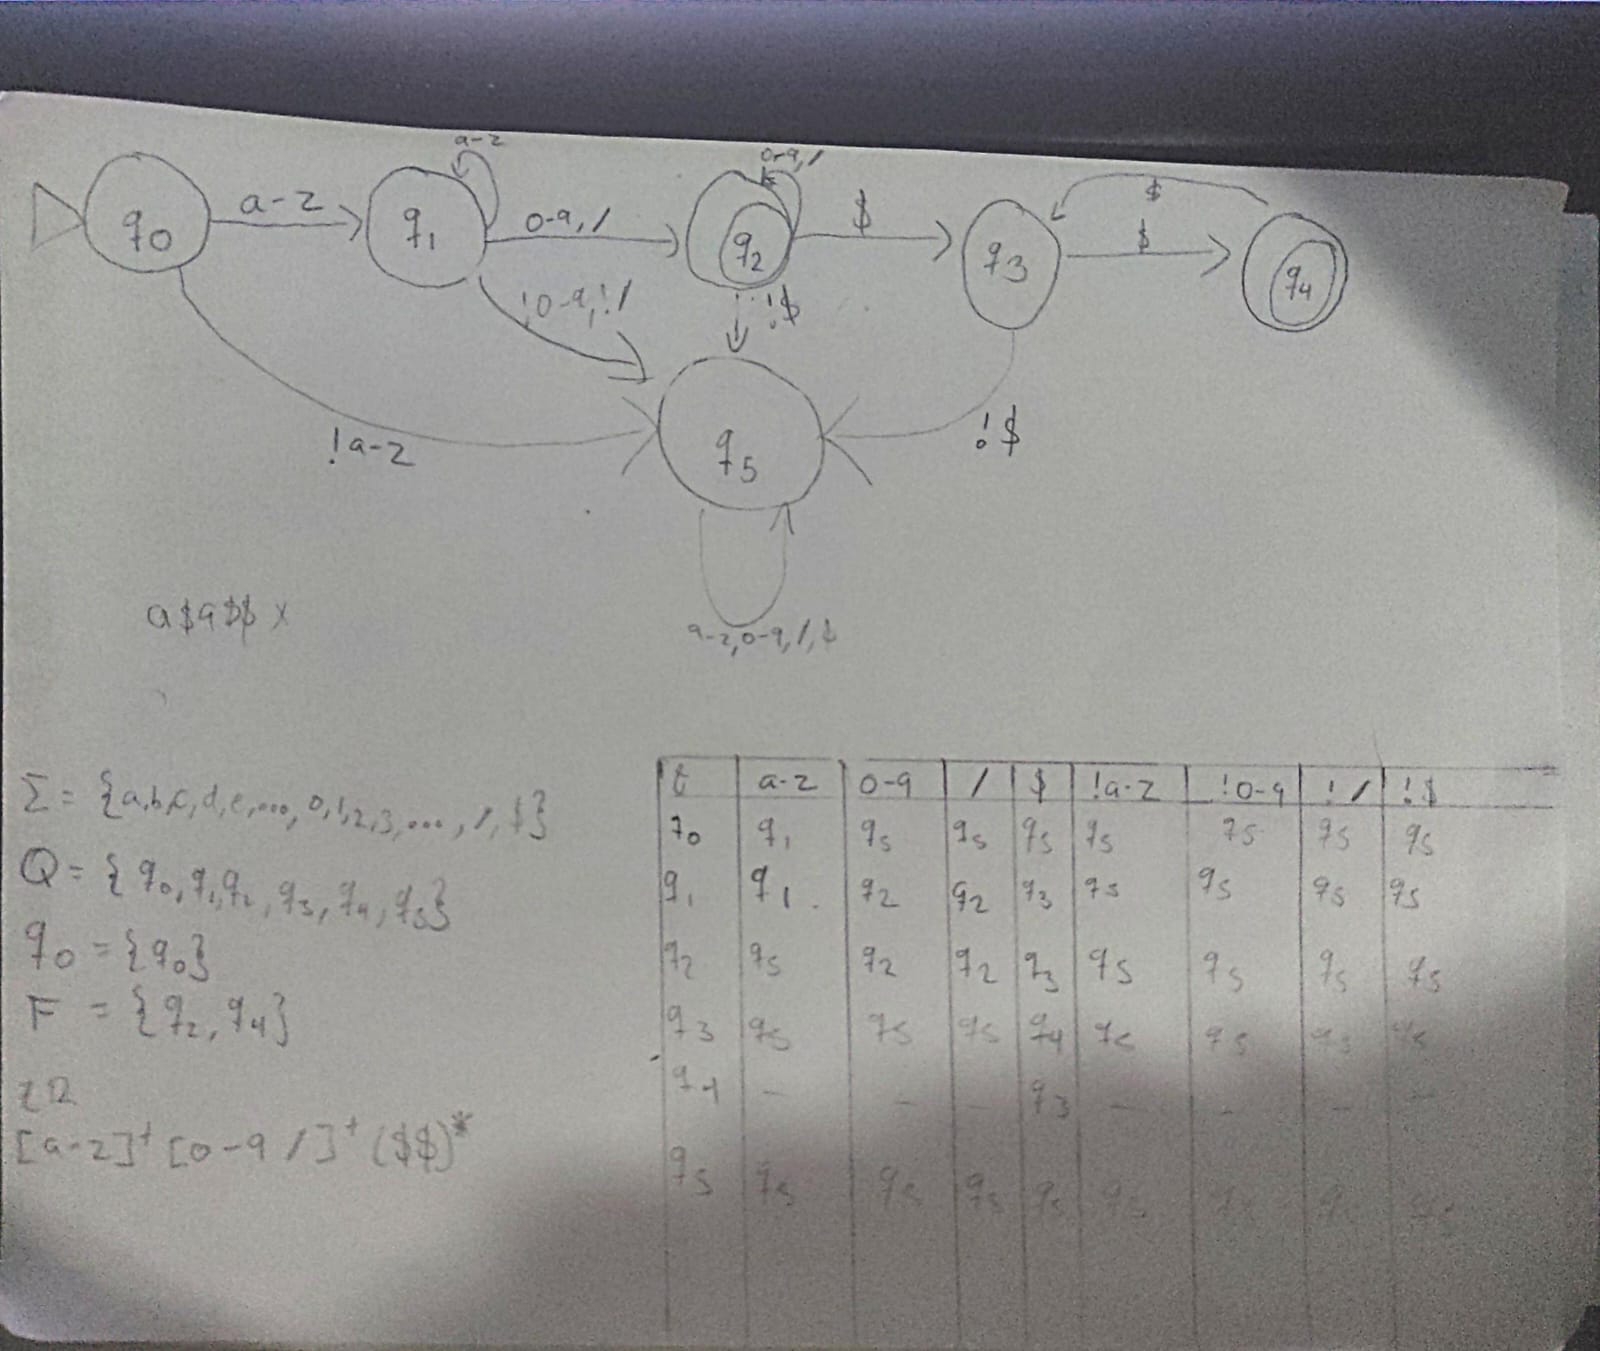 a-z
0-9, /
$
q0
a-z
q1
0-9, /
q2
$
q3
$
q4
!0-9, !/
!$
!a-z
q5
!$
a-z, 0-9, /, $
a$a$$ x
Σ = {a,b,c,d,e,..., 0,1,2,3,..., /, $}
Q = {q0, q1, q2, q3, q4, q5}
q0 = {q0}
F = {q2, q4}
[a-z]+ [0-9 /]+ ($$)*
t a-z 0-9 / $ !a-z !0-9 !/ !$
q0 q1 q5 q5 q5 q5 q5 q5 q5
q1 q1 q2 q2 q3 q5 q5 q5 q5
q2 q5 q2 q2 q3 q5 q5 q5 q5
q3 q5 q5 q5 q4 q5 q5 q5
q4 - - - q3 - - - -
q5 q5 q5 q5 q5 q5 q5